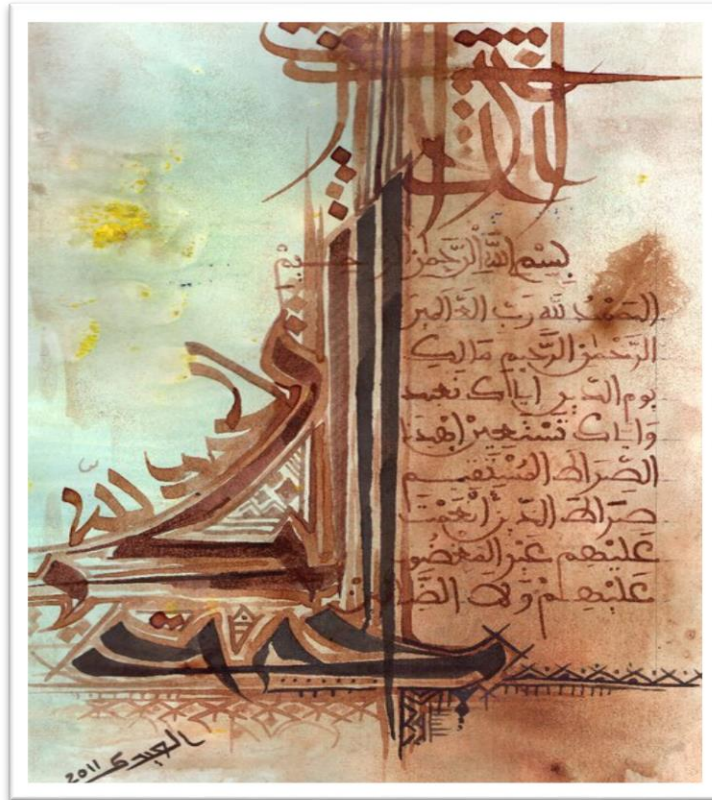 بسم الله الرحمن الرحيم
الحمد لله رب العالمين
الرحمن الرحيم مالك
يوم الدين اياك نعبد
واياك نستعين اهدنا
الصراط المستقيم
صراط الذين أنعمت
عليهم غير المغضوب
عليهم ولا الضالين
الحمد
لله
2011